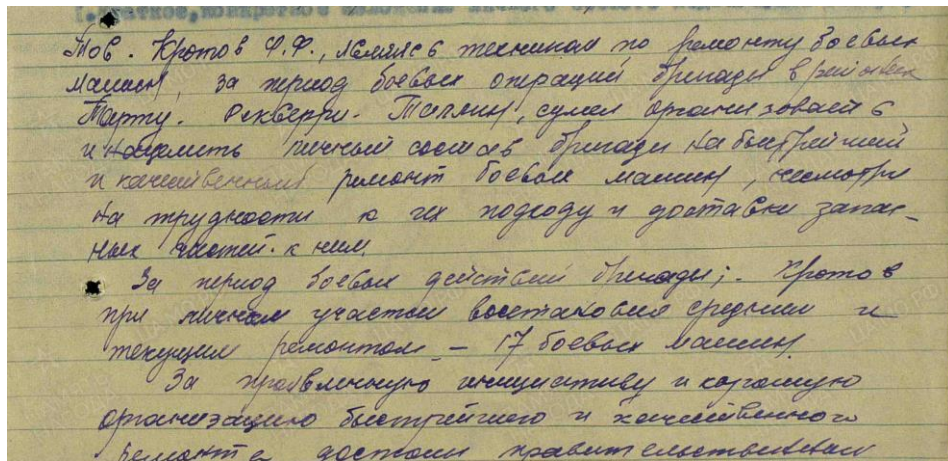 1. Краткое, конкретное изложение личного
Тов. Кротов Ф.Ф., являясь техником по ремонту боевых
машин, за период боевых операций бригады в районах
Тарту. Рекверри. Таллин, сумел организовать
и нацелить личный состав бригады на быстрейший
и качественный ремонт боевых машин, несмотря
на трудности к их подходу и доставки запас-
ных частей. к ним.
За период боевых действий бригады;. Кротов
при личном участии востановил средним и
текущим ремонтом – 17 боевых машин.
За проявленную инициативу и хорошую
организацию быстрейшего и качественного
ремонта достоин правительственной